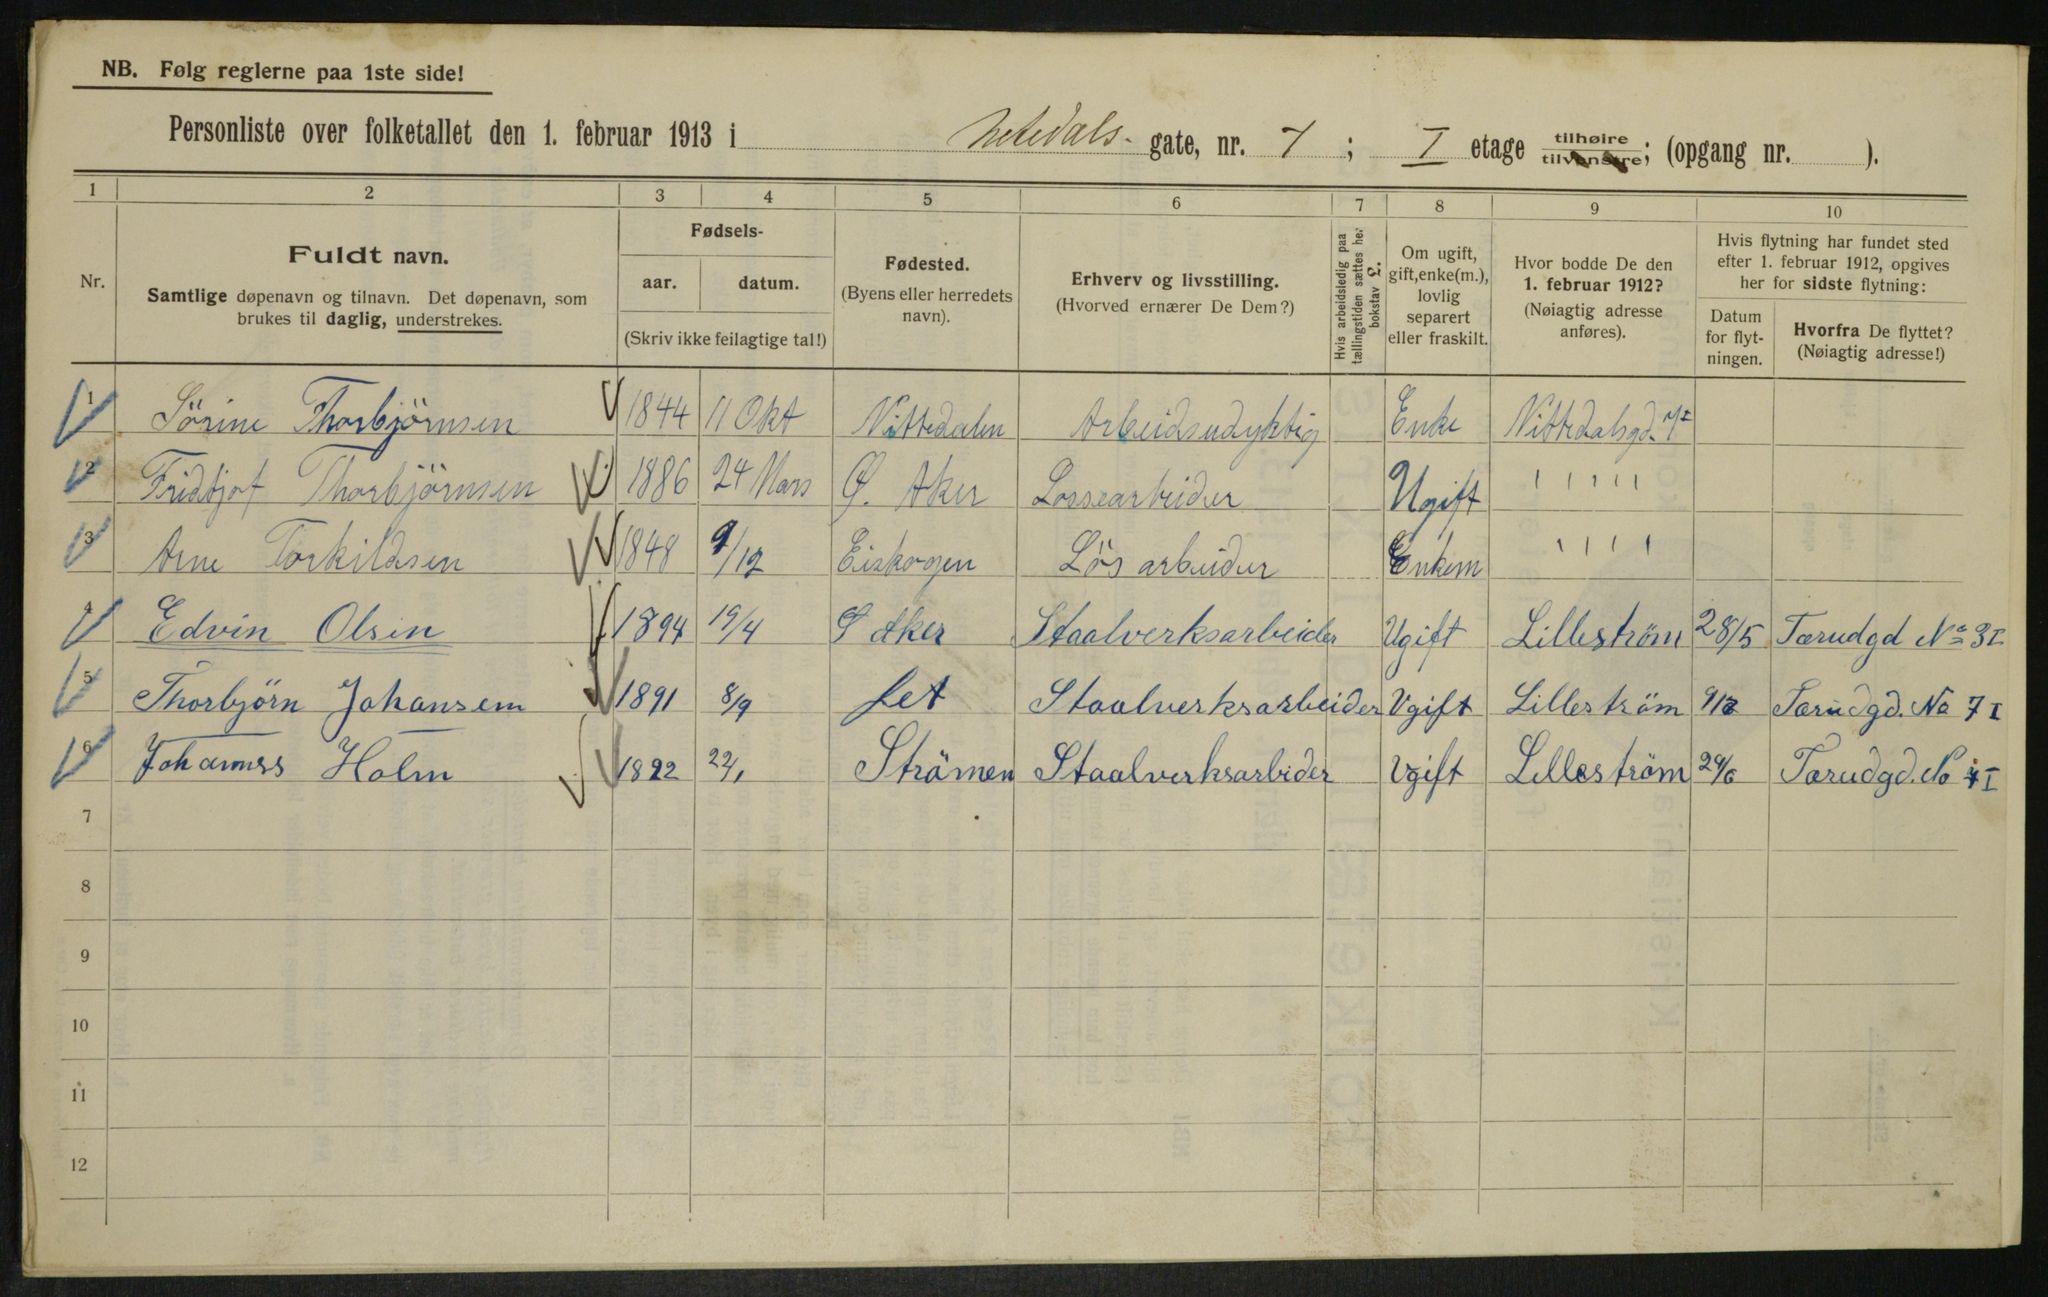 NB. Følg reglerne paa 1ste side!
Personliste over folketallet den 1. februar 1913 i Nitedals- gate, nr. 7; I etage tilhøire tilvenstre; (opgang nr. ).
1 2 3 4 5 6 7 8 9 10
Nr.
Fuldt navn.
Samtlige døpenavn og tilnavn. Det døpenavn, som
brukes til daglig, understrekes.
Fødsels-
aar. datum.
(Skriv ikke feilagtige tal!)
Fødested.
(Byens eller herredets
navn).
Erhverv og livsstilling.
(Hvorved ernærer De Dem?)
Hvis arbeidsledig paa
tællingstiden sættes her
bokstav L.
Om ugift,
gift, enke(m.),
lovlig
separert
eller fraskilt.
Hvor bodde De den
1. februar 1912?
(Nøiagtig adresse
anføres).
Hvis flytning har fundet sted
efter 1. februar 1912, opgives
her for sidste flytning:
Datum
for flyt-
ningen.
Hvorfra De flyttet?
(Nøiagtig adresse!)
1 Sörine Thorbjörnsen 1844 11 Okt Nittedalen Arbeidsudyktig Enke Nittedalsgd. 7 I
2 Fridtjof Thorbjörnsen 1886 24 Mars Ø. Aker Lossearbeider Ugift " " " " "
3 Arne Torkildsen 1848 9/12 Eiskogen Lös arbeider Enkem " " " "
4 Edvin Olsen 1894 19/4 Aker Staalverksarbeider Ugift Lilleström 28/5 Tærudgd No 3 I
5 Thorbjörn Johansen 1891 8/9 Fet Staalverksarbeider Ugift Lilleström Tærudgd. No 7 I
6 Johannes Holm 1892 22/1 Strömen Staalverksarbider Ugift Lilleström 24/6 Tærudgd. No I
7
8
9
10
11
12